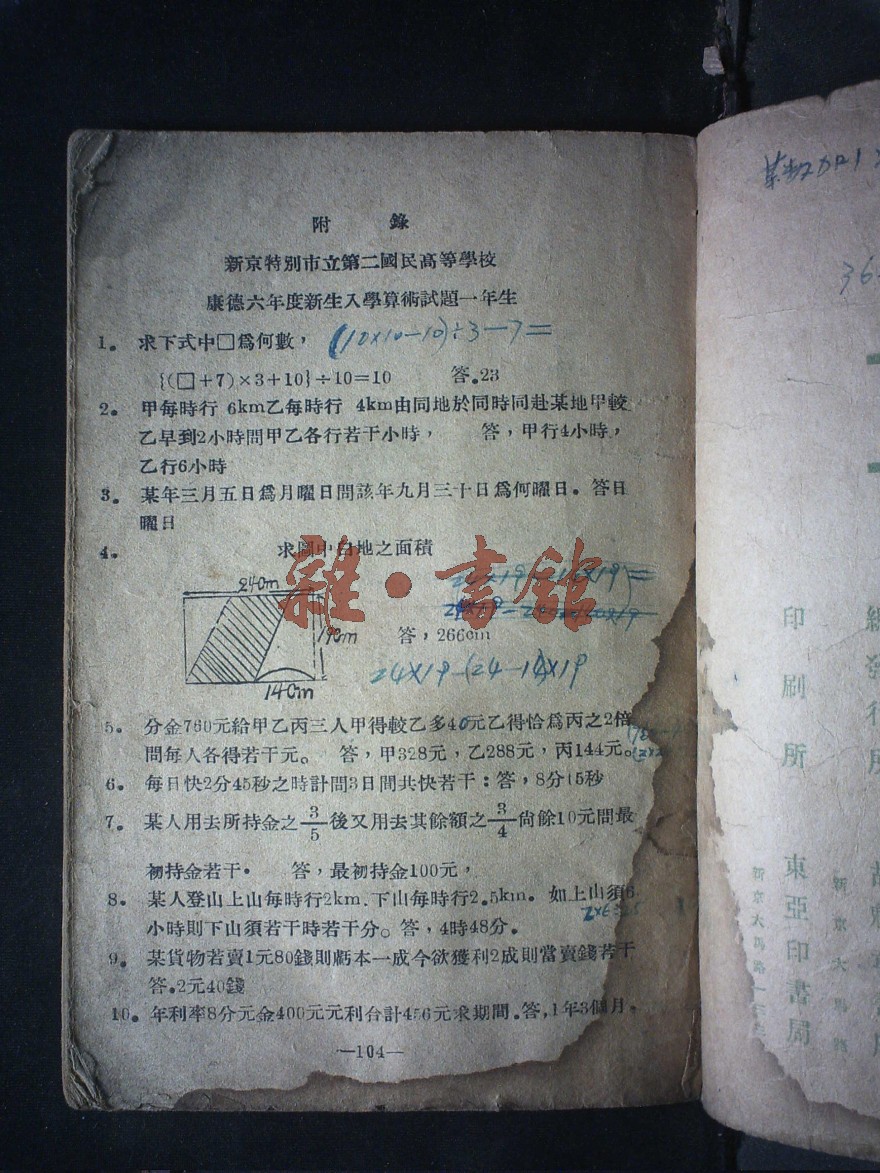 附 錄
新京特别市立第二國民高等學校
康德六年度新生入學算術試題一年生
1。 求下式中□爲何數， (10×10-10)÷3-7=
{(□+7)×3+10}÷10=10 答.23
2。 甲每時行 6km乙每時行 4km由同地於同時同赴某地甲較
乙早到2小時問甲乙各行若干小時， 答，甲行4小時，
乙行6小時
3。 某年三月五日爲月曜日問該年九月三十日爲何曜日。答日
曜日
4。 求圖中白地之面積
240m
190m
140m
答，266cm
24×19-(24-14)×19
5。 分金760元給甲乙丙三人甲得較乙多40元乙得恰爲丙之2倍
問每人各得若干元。 答，甲328元，乙288元，丙144元。
6。 每日快2分45秒之時計問3日間共快若干：答，8分15秒
7。 某人用去所持金之3/5後又用去其餘額之3/4尙餘10元問最
初持金若干• 答，最初持金100元，
8。 某人登山上山每時行2km.下山每時行2.5km。如上山須6
小時則下山須若干時若干分。答，4時48分。
9。 某貨物若賣1元80錢則虧本一成今欲獲利2成則當賣錢若干
答.2元40錢
10。年利率8分元金400元元利合計456元求期間.答,1年3個月。
—104—
雜•書館
某数加1
36
印刷所
東亞印書局
新京大馬路一
總發行所
新京大馬路